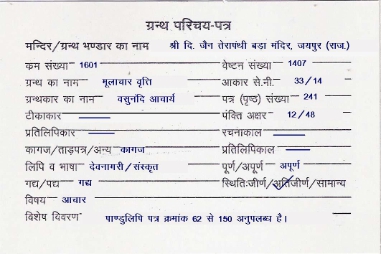 ग्रन्थ परिचय-पत्र
मन्दिर/ग्रन्थ भण्डार का नाम श्री दि. जैन तेरापंथी बडा मंदिर, जयपुर (राज.)
क्रम संख्या 1601 वेष्टन संख्या 1407
ग्रन्थ का नाम मूलाचार वृत्ति आकार से.मी. 33/14
ग्रन्थकार का नाम वसुनंदि आचार्य पत्र (पृष्ठ) संख्या 241
टीकाकार पंक्ति अक्षर 12/48
प्रतिलिपिकार रचनाकाल
कागज/ताड़पत्र/अन्य कागज प्रतिलिपिकाल
लिपि व भाषा देवनागरी/संस्कृत पूर्ण/अपूर्ण अपूर्ण
गद्य/पद्य गद्य स्थितिःजीर्ण/अतिजीर्ण/सामान्य
विषय आचार
विशेष विवरण पाण्डुलिपि पत्र क्रमांक 62 से 150 अनुपलब्ध है।